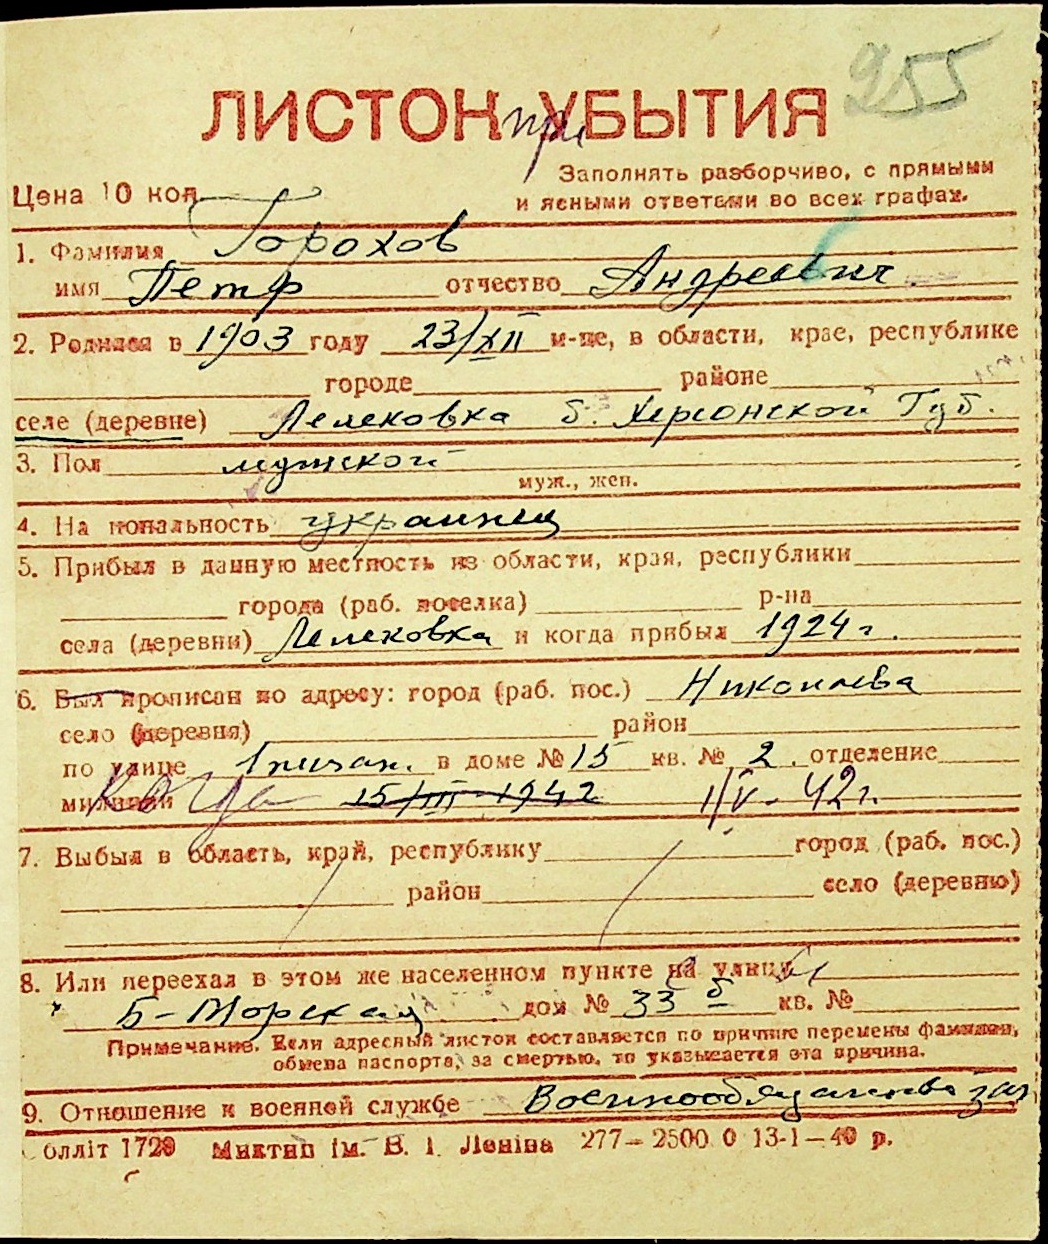 255
ЛИСТОК при УБЫТИЯ
Заполнять разборчиво, с прямыми
Цена 10 коп
и ясными ответами во всех графах.
1. Фамилия Горохов
имя Петр отчество Андреевич
2. Родился в 1903 году 23/XII м-це, в области, крае, республике
городе районе
селе (деревне) Лелековка б. Херсонской Губ.
3. Пол мужской
муж., жен.
4. На иональность украинец
5. Прибыл в данную местность из области, края, республики
города (раб. поселка) р-на
села (деревни) Лелековка и когда прибыл 1924 г.
6. Был прописан по адресу: город (раб. пос.) Николаева
село (деревня) район
по улице в доме № 15 кв. № 2. отделение
милиции Когда 15/III-1942 1/V-42 г.
7. Выбыл в область, край, республику город (раб. пос.)
район село (деревню)
8. Или переехал в этом же населенном пункте на улицу
Б-Морская дом № 33 б кв. №
Примечание. Если адресный листок составляется по причине перемены фамилии,
обмена паспорта, за смертью, то указывается эта причина.
9. Отношение к военной службе
олліт 1729 Миктип ім. В. І. Леніна 277—2500 0 13-1—40 р.